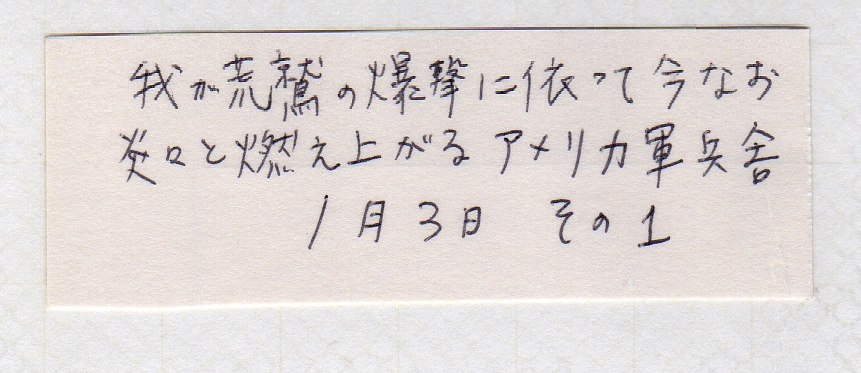 我が荒鷲の爆撃に依って今なお
炎々と燃え上がるアメリカ軍兵舎
1月3日 その1